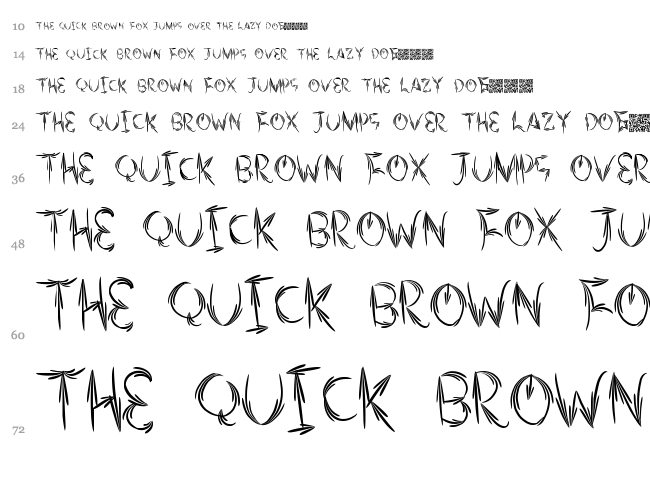 10 THE QUICK BROWN FOX JUMPS OVER THE LAZY DOG
14 THE QUICK BROWN FOX JUMPS OVER THE LAZY DOG
18 THE QUICK BROWN FOX JUMPS OVER THE LAZY DOG
24 THE QUICK BROWN FOX JUMPS OVER THE LAZY DOG
36 THE QUICK BROWN FOX JUMPS OVER
48 THE QUICK BROWN FOX JU
60 THE QUICK BROWN FO
72 THE QUICK BROWN